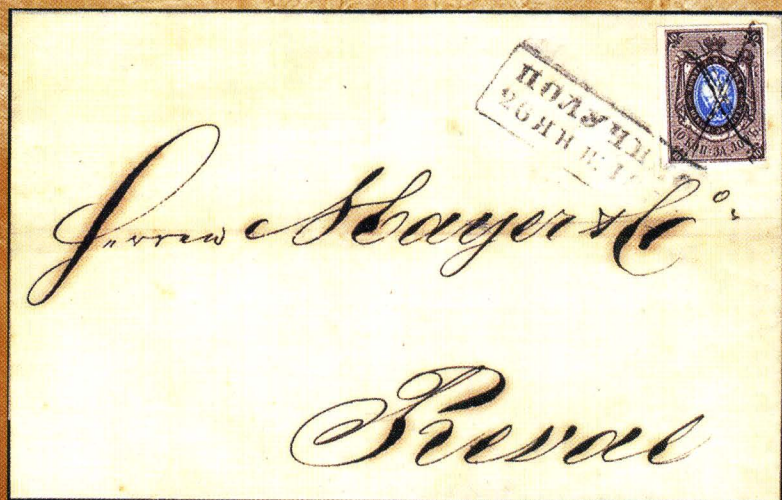 ПОЛУЧЕНО
10 КОП: ЗА ЛОТЪ.
Herren Mayer & Co.
Reval